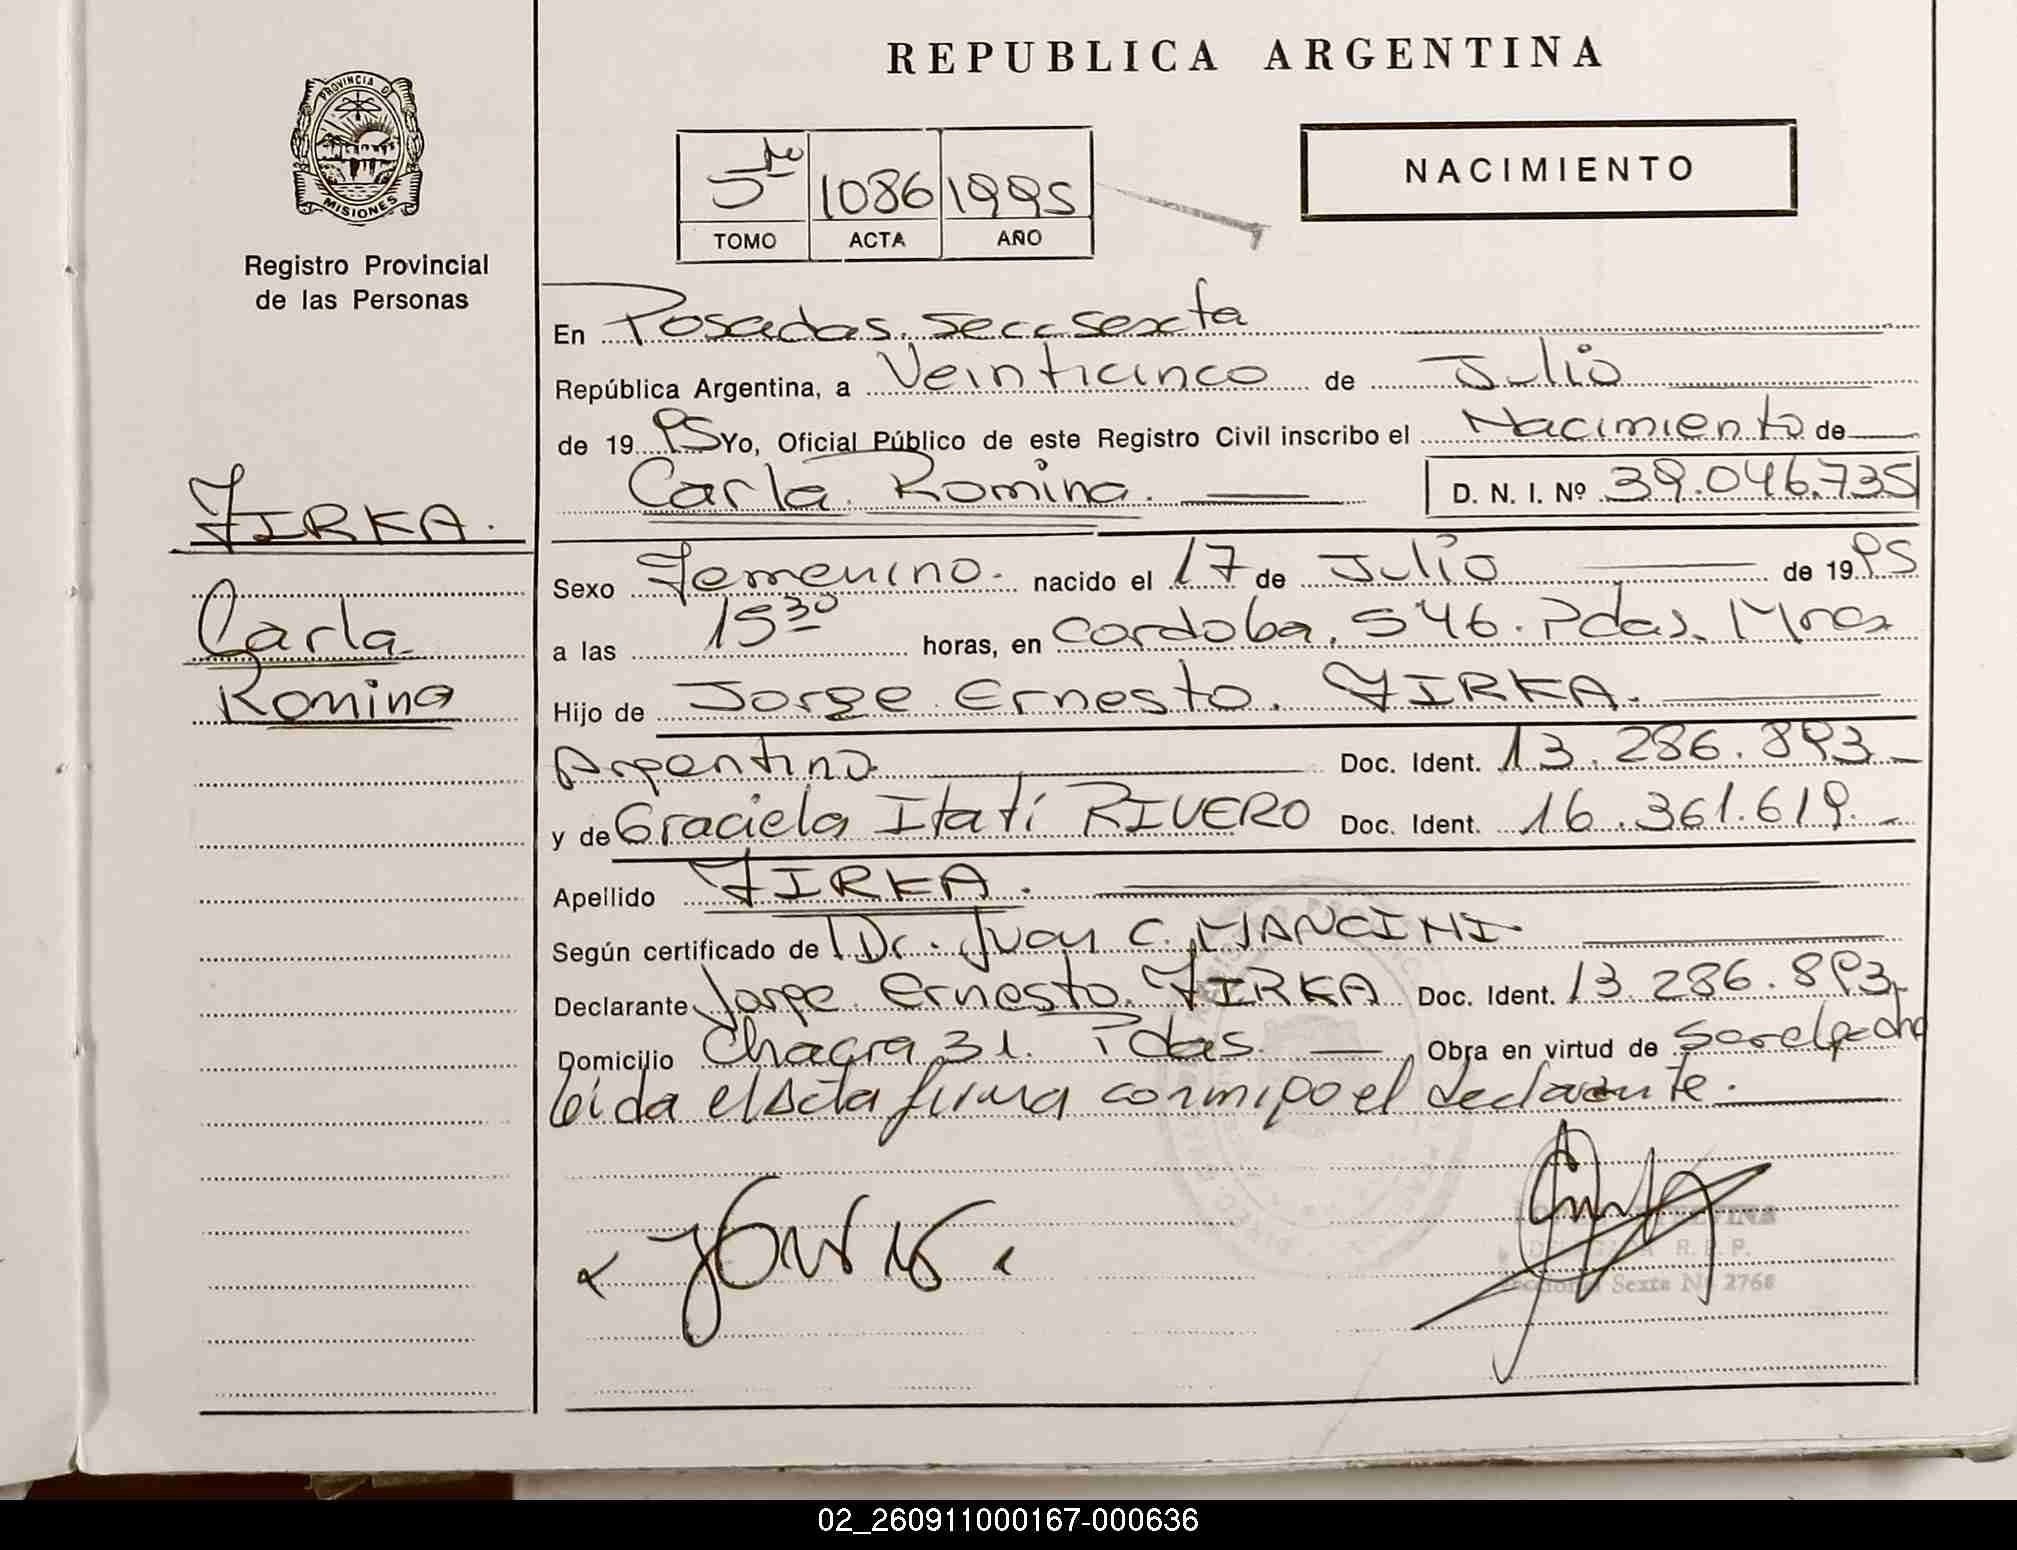 REPUBLICA ARGENTINA
PROVINCIA D
MISIONES
Registro Provincial
de las Personas
5to 1086 1995
TOMO ACTA AÑO
NACIMIENTO
En Posadas. Secc Sexta
República Argentina, a Veinticinco de Julio
de 1995 Yo, Oficial Público de este Registro Civil inscribo el Nacimiento de
Carla. Romina. D. N. I. Nº 39.046.735
FIRKA.
Carla
Romina
Sexo Femenino. nacido el 17 de Julio de 1995
a las 15 30 horas, en Cordoba. 546. Pdas. Mnes
Hijo de Jorge Ernesto. FIRKA.
Argentino Doc. Ident. 13.286.893
y de Graciela Itatí RIVERO Doc. Ident. 16.361.619.
Apellido FIRKA.
Según certificado de Dr. Juan C. MANCINI
Declarante Jorge Ernesto. FIRKA Doc. Ident. 13.286.893
Domicilio Chacra 31. Pdas. Obra en virtud de
leida el Acta firma conmigo el declarante.
R. P.
Sexta Nº 2768
02_260911000167-000636